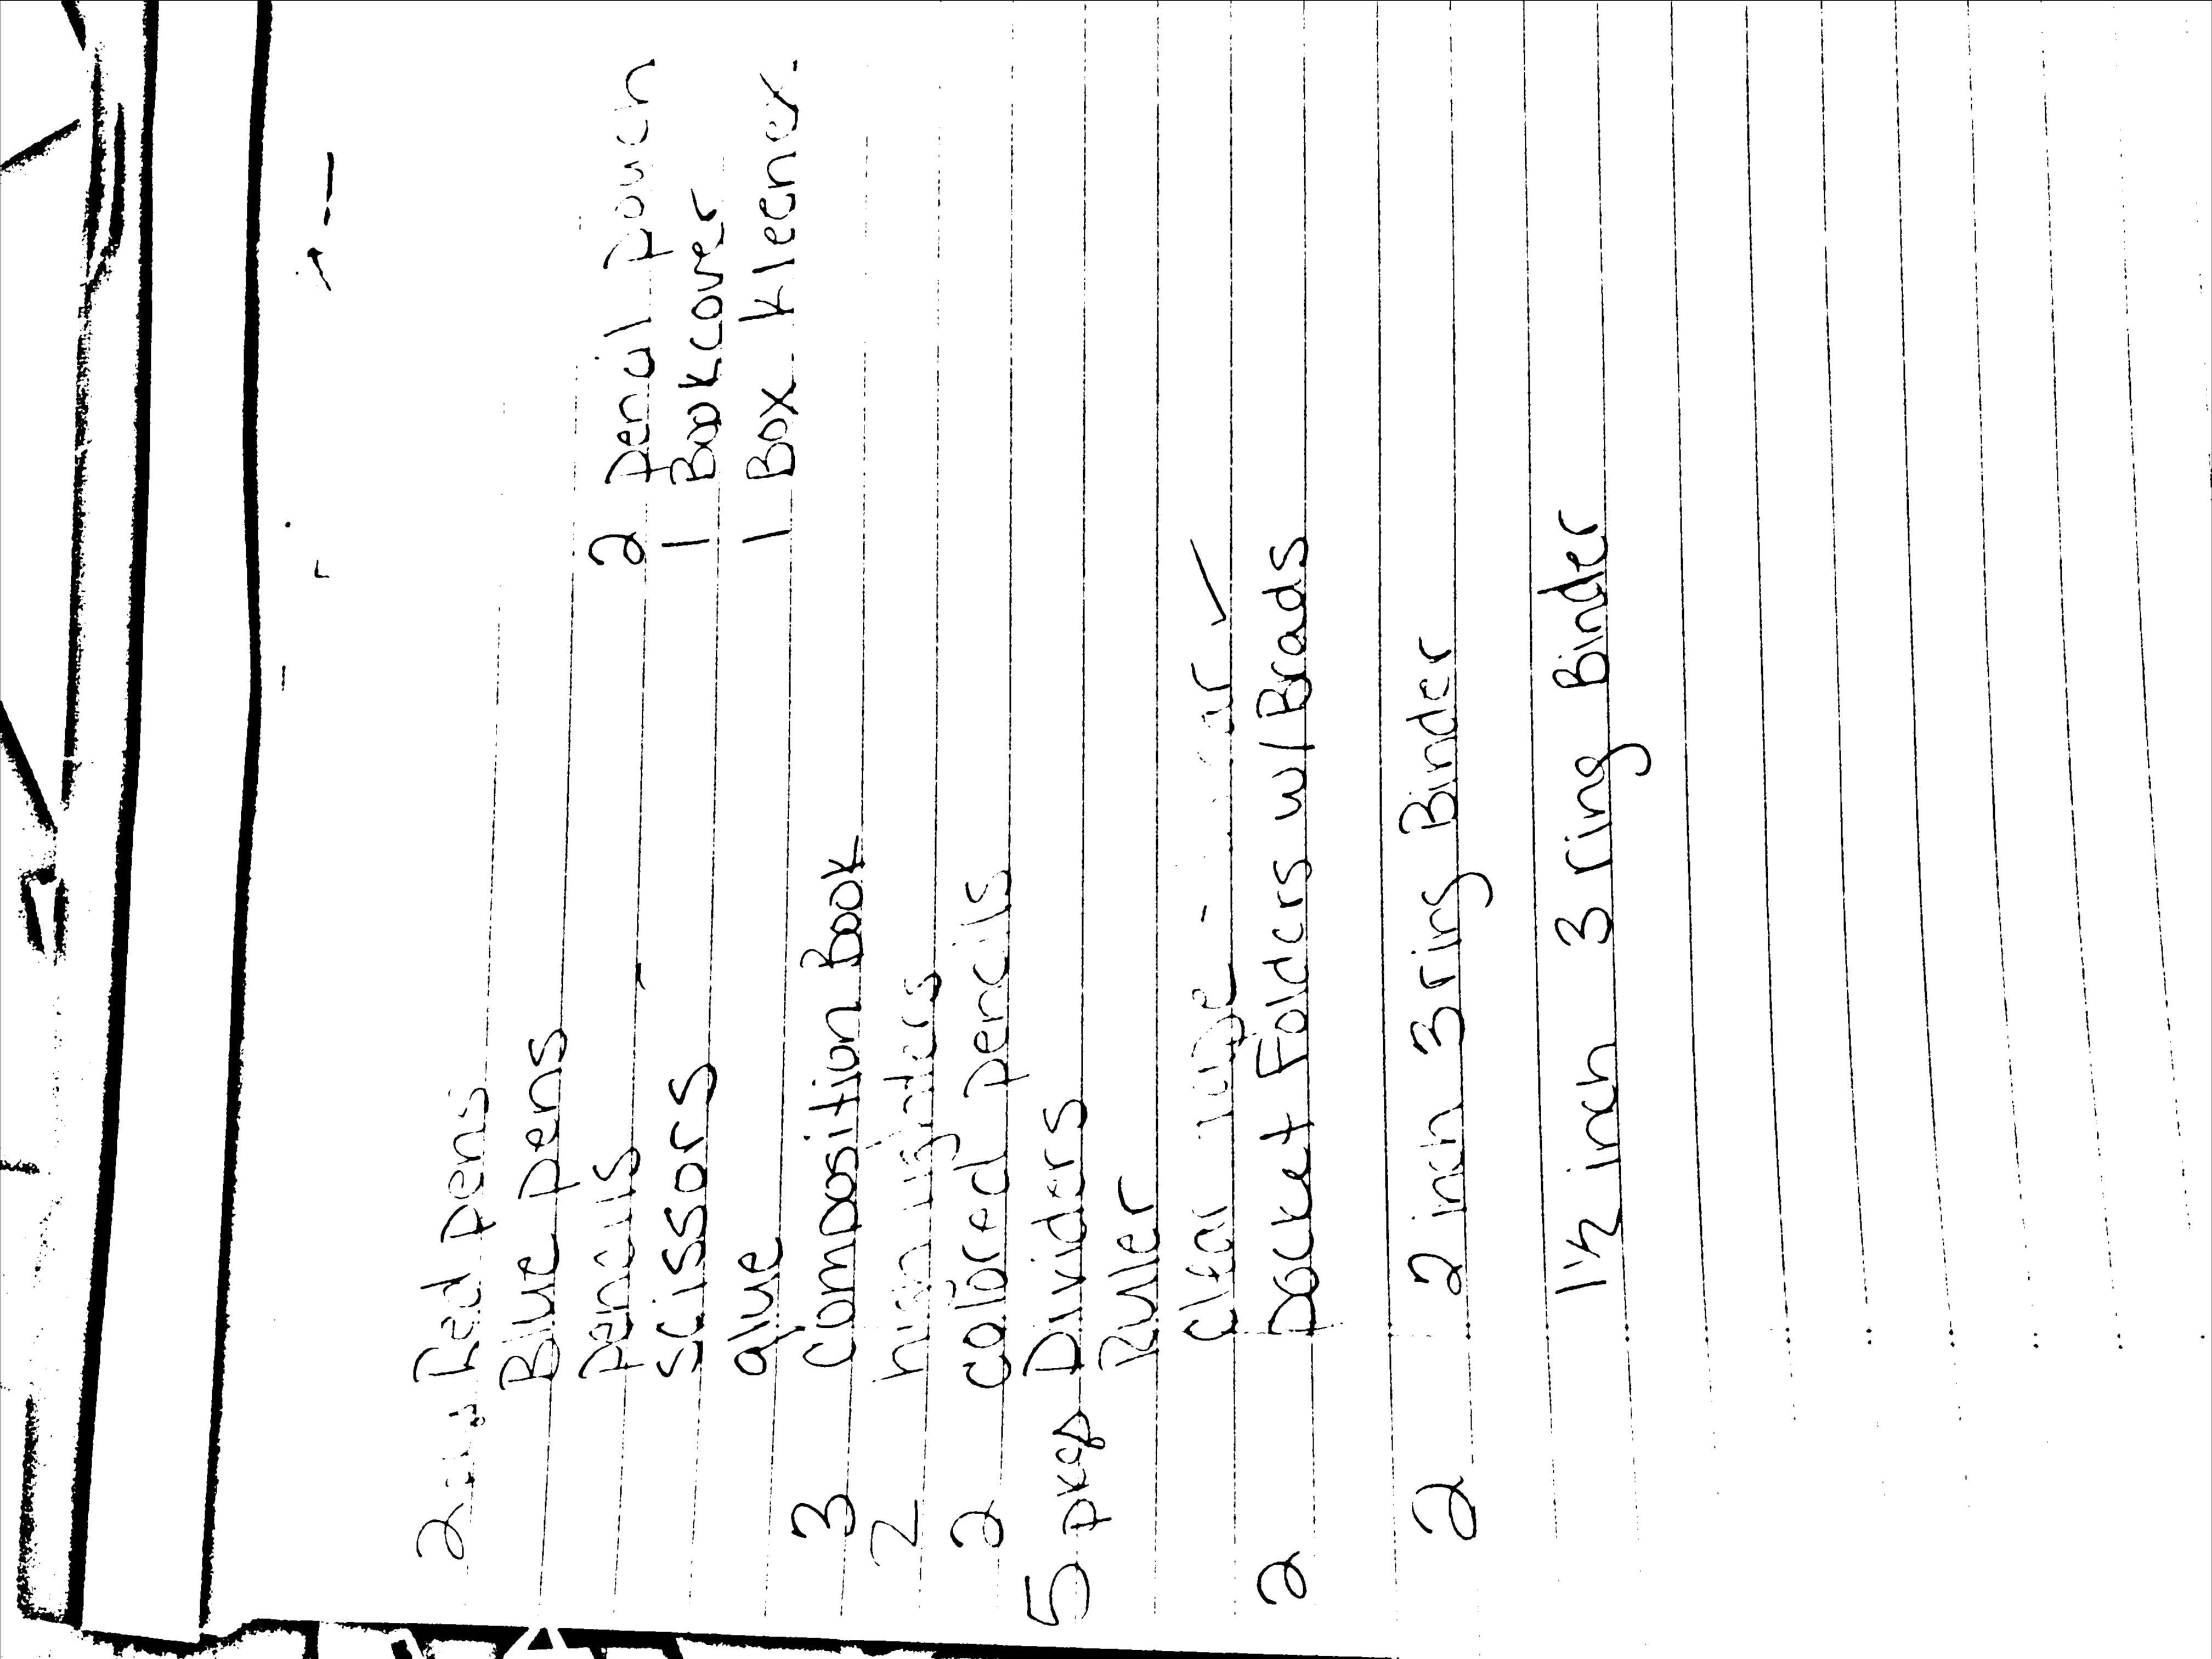 2 Red pens
Blue pens
pencils
scissors
glue
3 Composition Book
2 highlighters
2 colored pencils
5 pkgs Dividers
Ruler
Clear tape -
2 pocket Folders w/Brads
2 2 inch 3 ring Binder
1½ inch 3 ring Binder
2 pencil pouch
1 Bookcover
1 Box kleenex